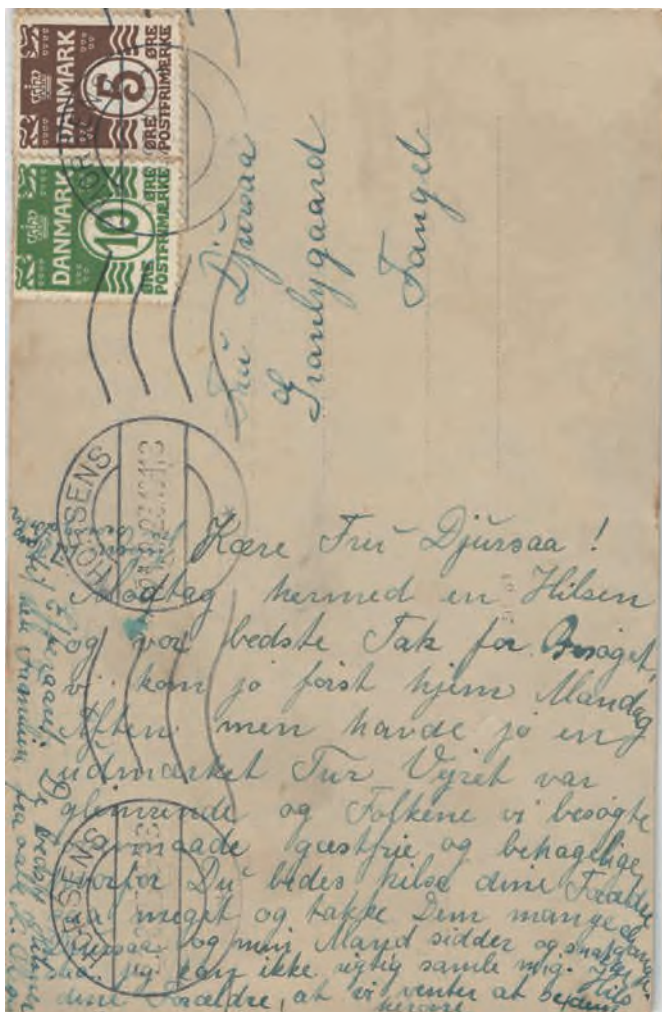 DANMARK
5
ØRE
ØRE
POSTFRIMÆRKE
DANMARK
10
ØRE
ØRE
POSTFRIMÆRKE
HORSENS
HORSENS
HORSENS
Fru Djursaa
Granlygaard
Fangel
Kære Fru Djursaa!
Modtag hermed en Hilsen
og vor bedste Tak for Besøget,
vi kom jo først hjem Mandag
Aften men havde jo en
udmærket Tur Vejret var
glimrende og Folkene vi besøgte
gæstfrie og behagelige
hvorfor Du bedes hilse dine Forældre
saa meget og takke Dem mange
og min Mand sidder og
jeg kan ikke rigtig samle mig. Hils
dine Forældre, at vi venter at se dem
herovre
Efteraaret De bedste Hilsner